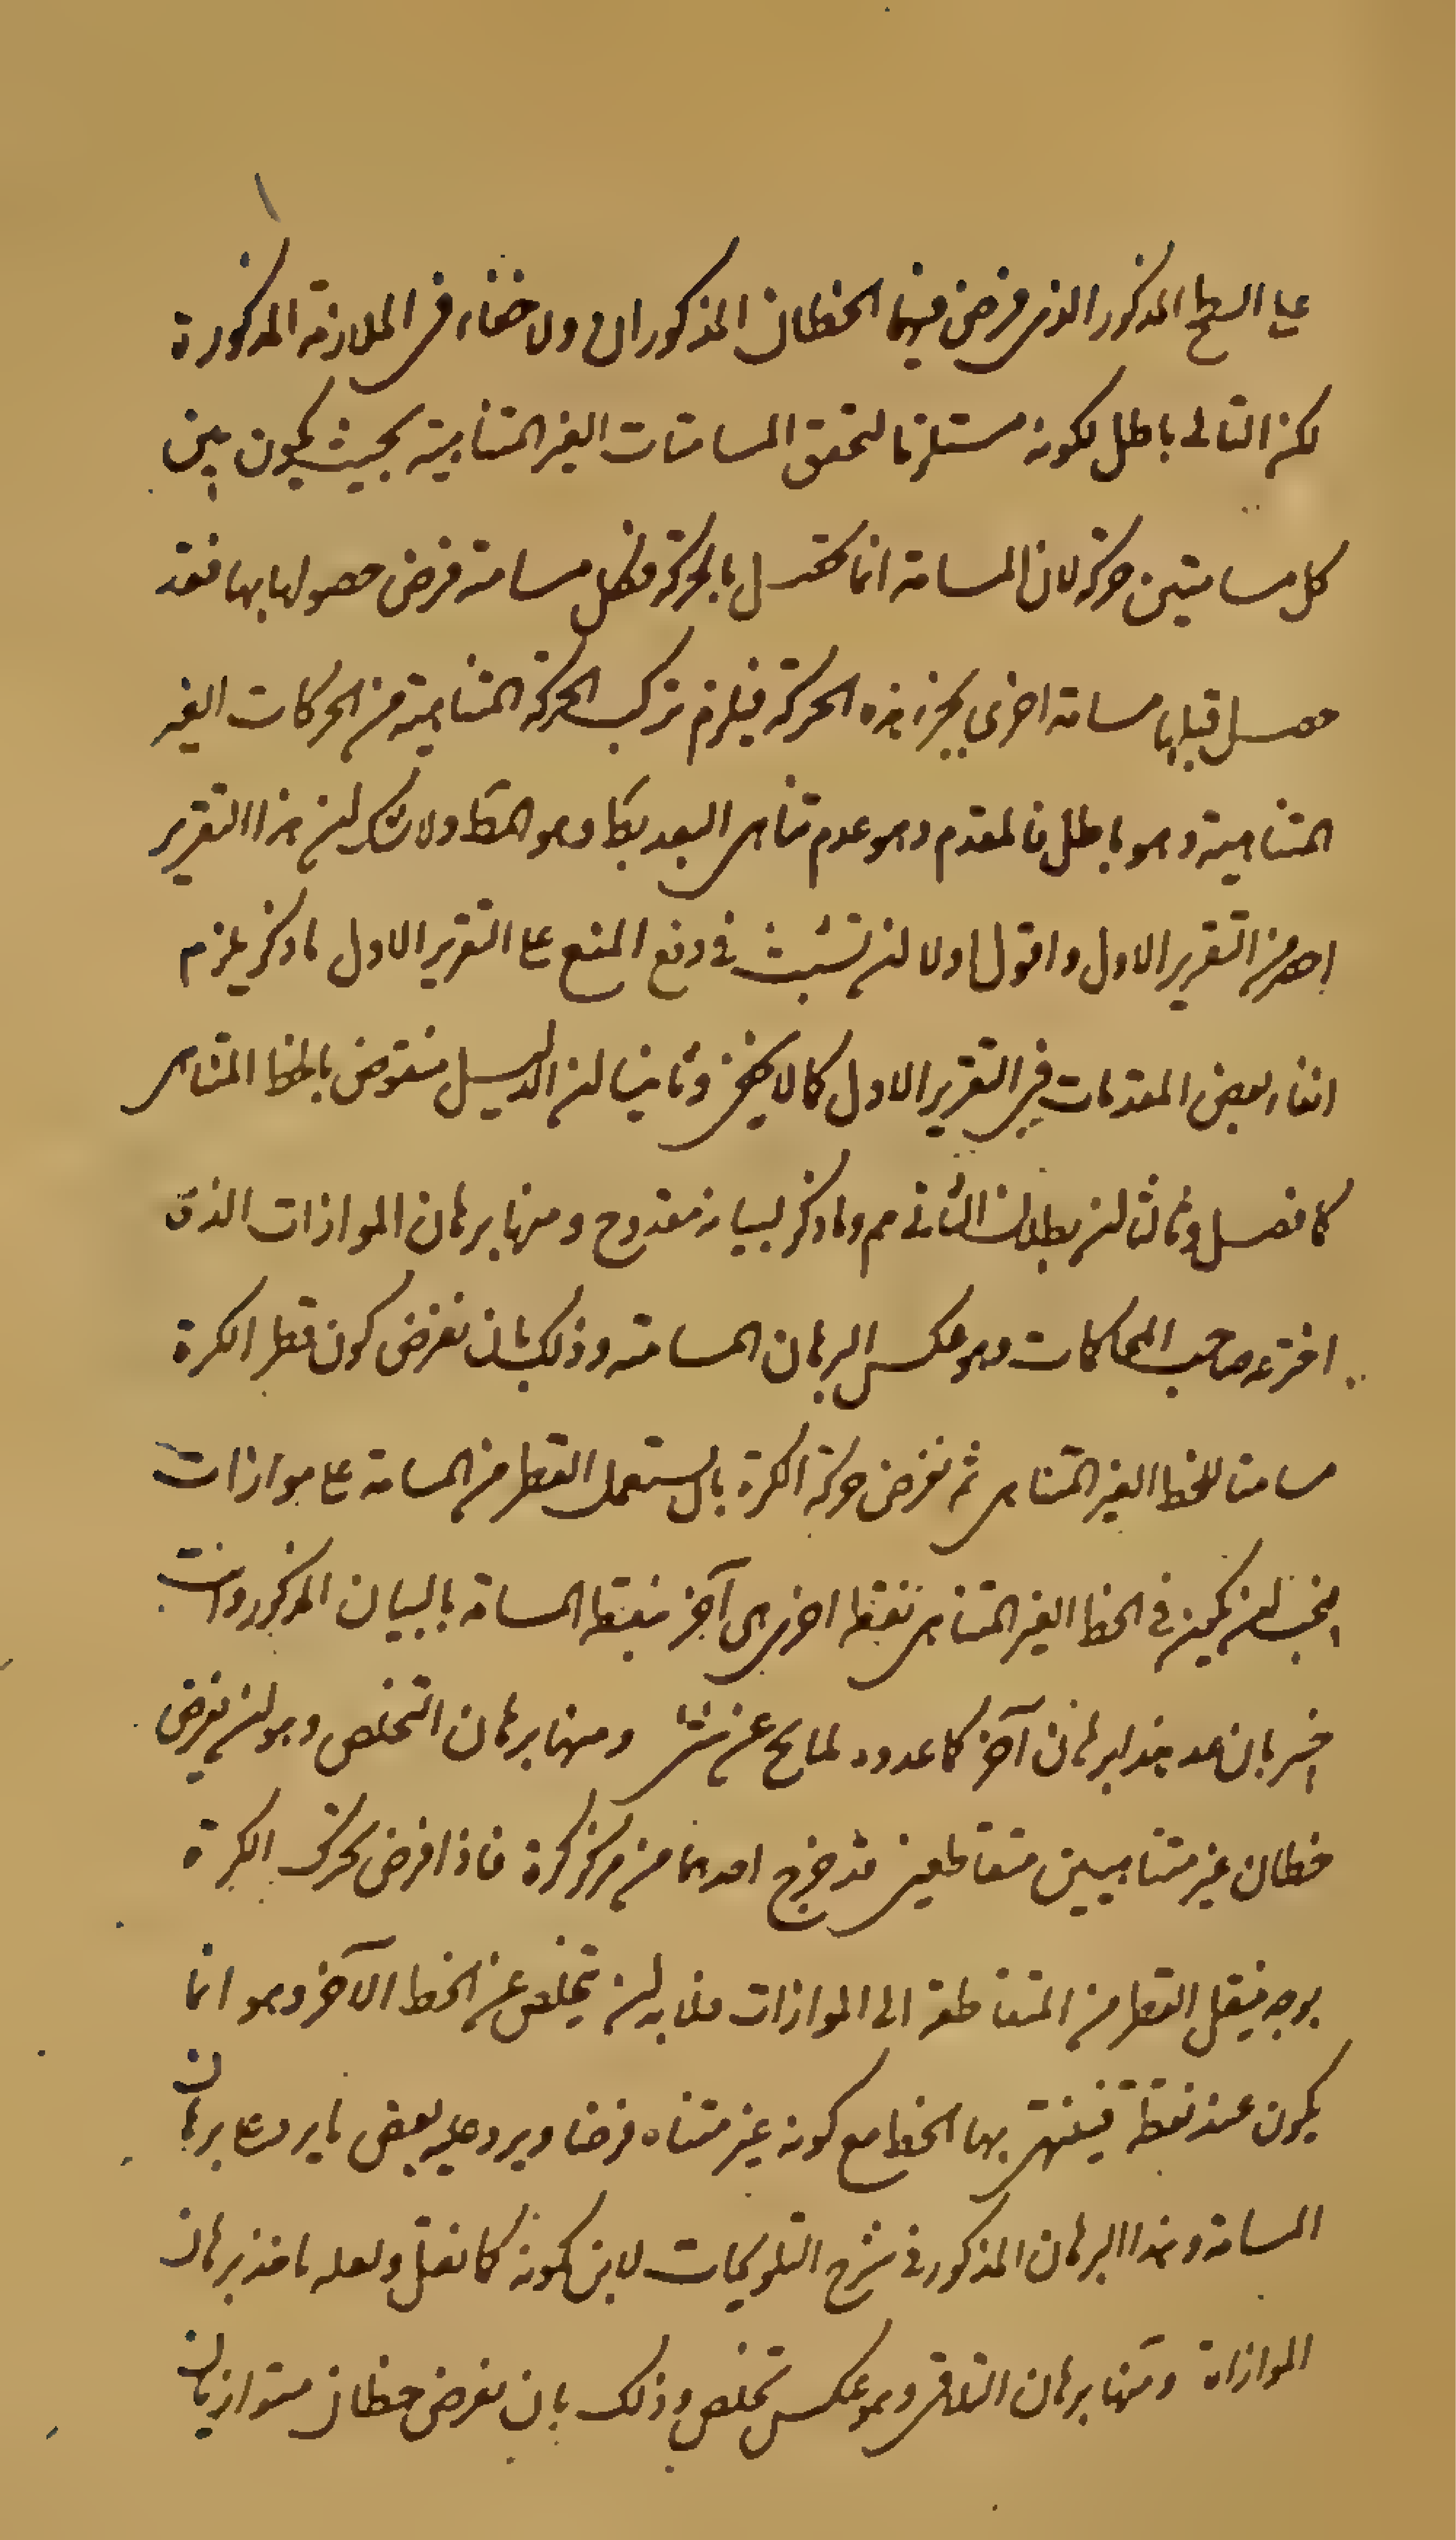 علی السطح المذكور الذی فرض فیهما الخطان المذكوران ولا خفاء فی الملازمة المذكورة
لكن التالی باطل لكونه مستلزما لتحقق المسامتات الغیر المتناهیة بحیث یكون بین
كل مسامتتین حركة لان المسامتة انما تحصل بالحركة فكل مسامتة فرض حصولها بها فقد
حصل قبلها مسامتة اخری بجزء هذه الحركة فیلزم تركب الحركة المتناهیة من الحركات الغیر
المتناهیة وهو باطل فالمقدم وهو عدم تناهی البعد بط وهو المط ولا شك ان هذا التقریر
اخصر من التقریر الاول واقول اولا ان تشبث فی دفع المنع علی التقریر الاول بما ذكر یلزم
الغاء بعض المقدمات فی التقریر الاول كما لا یخفی وثانیا ان الدلیل منقوض بالخط المتناهی
كما فصل وثالثا ان بطلان الثانی مم وما ذكر لبیانه مقدوح ومنها برهان الموازات الذی
اخترعه صاحب المحاكمات وهو عكس البرهان المسامتة وذلك بان نفرض كون قطر الكرة
مسامتا للخط الغیر المتناهی ثم نفرض حركة الكرة بال القطر من المسامتة علی موازات
فیجب ان یكون فی الخط الغیر المتناهی نقطة اخری هی آخر نقطة المسامتة بالبیان المذكور وانت
خبیر بان عد هذا برهانا آخر كما عدوه لما یخ عن شئ ومنها برهان التخلص وهو ان یفرض
خطان غیر متناهیین متقاطعین قد خرج احدهما من مركز كرة فاذا فرض تحرك الكرة
بوجه ینتقل القطر من المتقاطعة الی الموازات فلا بد ان یتخلص عن الخط الآخر وهو انما
یكون عند نقطة فینتهی بها الخط مع كونه غیر متناه فرضا ویرد علیه بعض ما یرد علی برهان
المسامتة وهذا البرهان المذكور فی شرح التلویحات لابن كمونه كما نقل ولعله ماخذ برهان
الموازاة ومنها برهان التلاقی وهو عكس تخلص وذلك بان نفرض خطان متوازیان